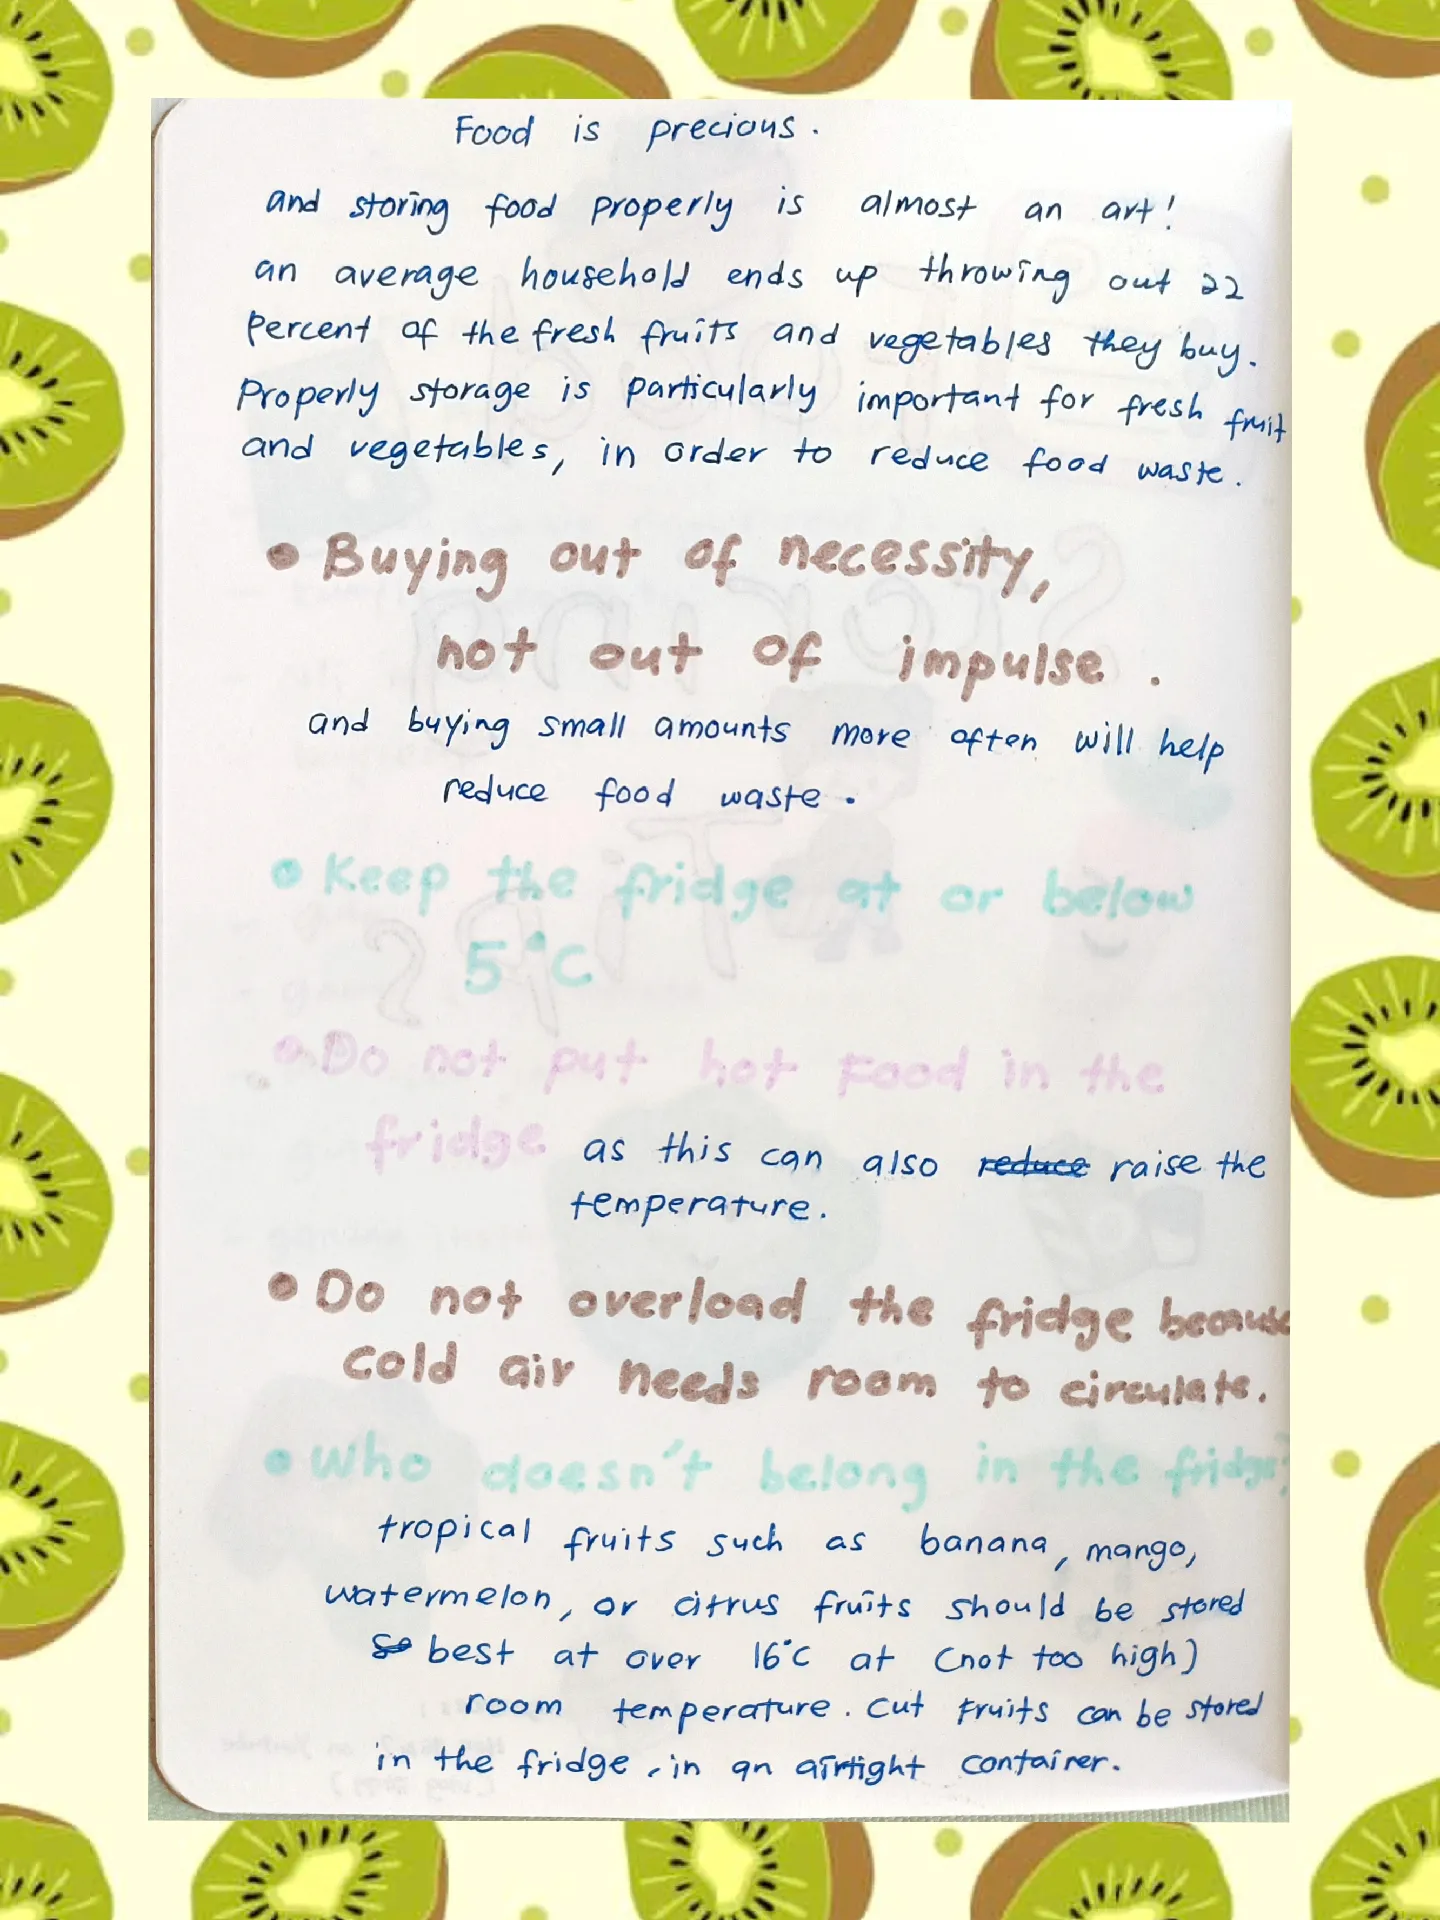 Food is precious.
and storing food properly is almost an art!
an average household ends up throwing out 22
percent of the fresh fruits and vegetables they buy.
Properly storage is particularly important for fresh fruit
and vegetables, in order to reduce food waste.
• Buying out of necessity,
not out of impulse.
and buying small amounts more often will help
reduce food waste.
• Keep the fridge at or below
5°C
• Do not put hot Food in the
fridge as this can also reduce raise the
temperature.
• Do not overload the fridge because
cold air needs room to circulate.
• Who doesn't belong in the fridge?
tropical fruits such as banana, mango,
watermelon, or citrus fruits should be stored
so best at over 16°C at (not too high)
room temperature. Cut Fruits can be stored
in the fridge, in an airtight container.